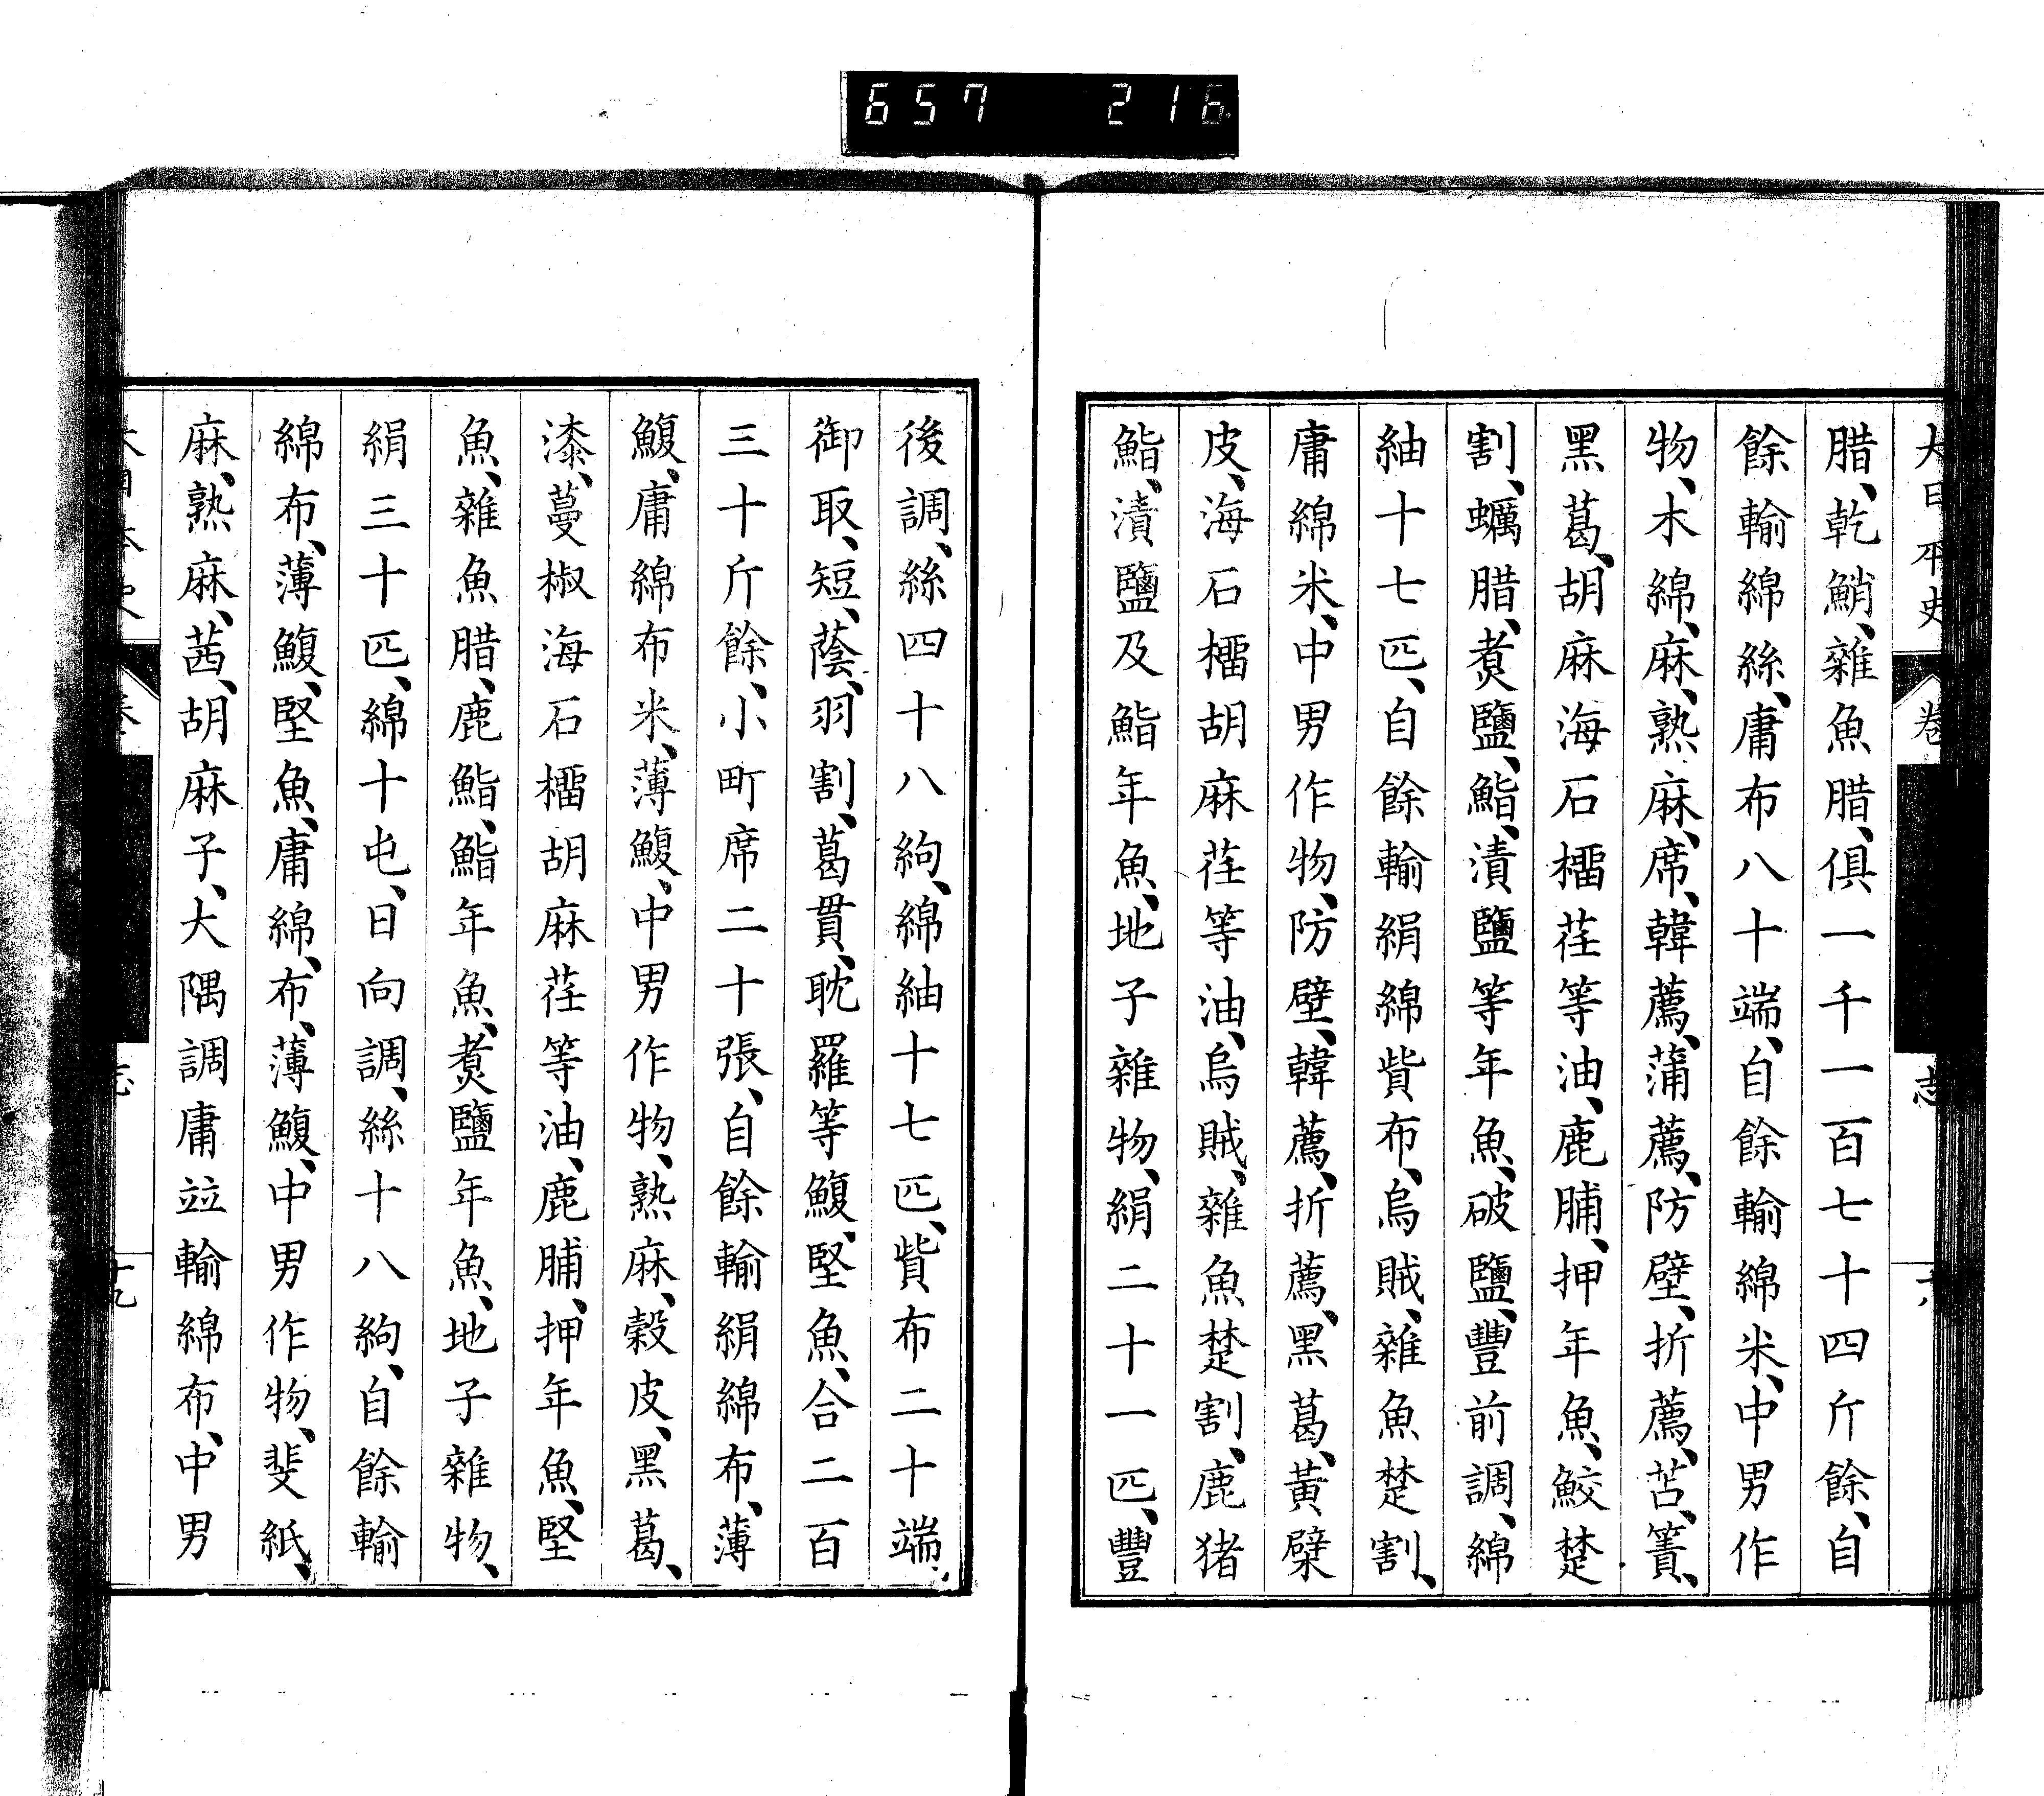 657 216
大日本史 卷 志
腊、乾鮹、雜魚腊、俱一千一百七十四斤餘、自
餘輸綿絲、庸布八十端、自餘輸綿米、中男作
物、木綿、麻、熟麻、席、韓薦、蒲薦、防壁、折薦、苫、簀、
黑葛、胡麻海石榴荏等油、鹿脯、押年魚、鮫楚
割、蠣腊、煮鹽、鮨、漬鹽等年魚、破鹽、豐前調、綿
紬十七匹、自餘輸絹綿貲布、烏賊、雜魚楚割、
庸綿米、中男作物、防壁、韓薦、折薦、黑葛、黃檗
皮、海石榴胡麻荏等油、烏賊、雜魚楚割、鹿猪
鮨、漬鹽及鮨年魚、地子雜物、絹二十一匹、豐
後調、絲四十八絇、綿紬十七匹、貲布二十端、
御取、短、蔭、羽割、葛貫、耽羅等鰒、堅魚、合二百
三十斤餘、小町席二十張、自餘輸絹綿布、薄
鰒、庸綿布米、薄鰒、中男作物、熟麻、榖皮、黑葛、
漆、蔓椒海石榴胡麻荏等油、鹿脯、押年魚、堅
魚、雜魚腊、鹿鮨、鮨年魚、煮鹽年魚、地子雜物、
絹三十匹、綿十屯、日向調、絲十八絇、自餘輸
綿布、薄鰒、堅魚、庸綿、布、薄鰒、中男作物、斐紙、
麻、熟麻、茜、胡麻子、大隅調庸竝輸綿布、中男
十九